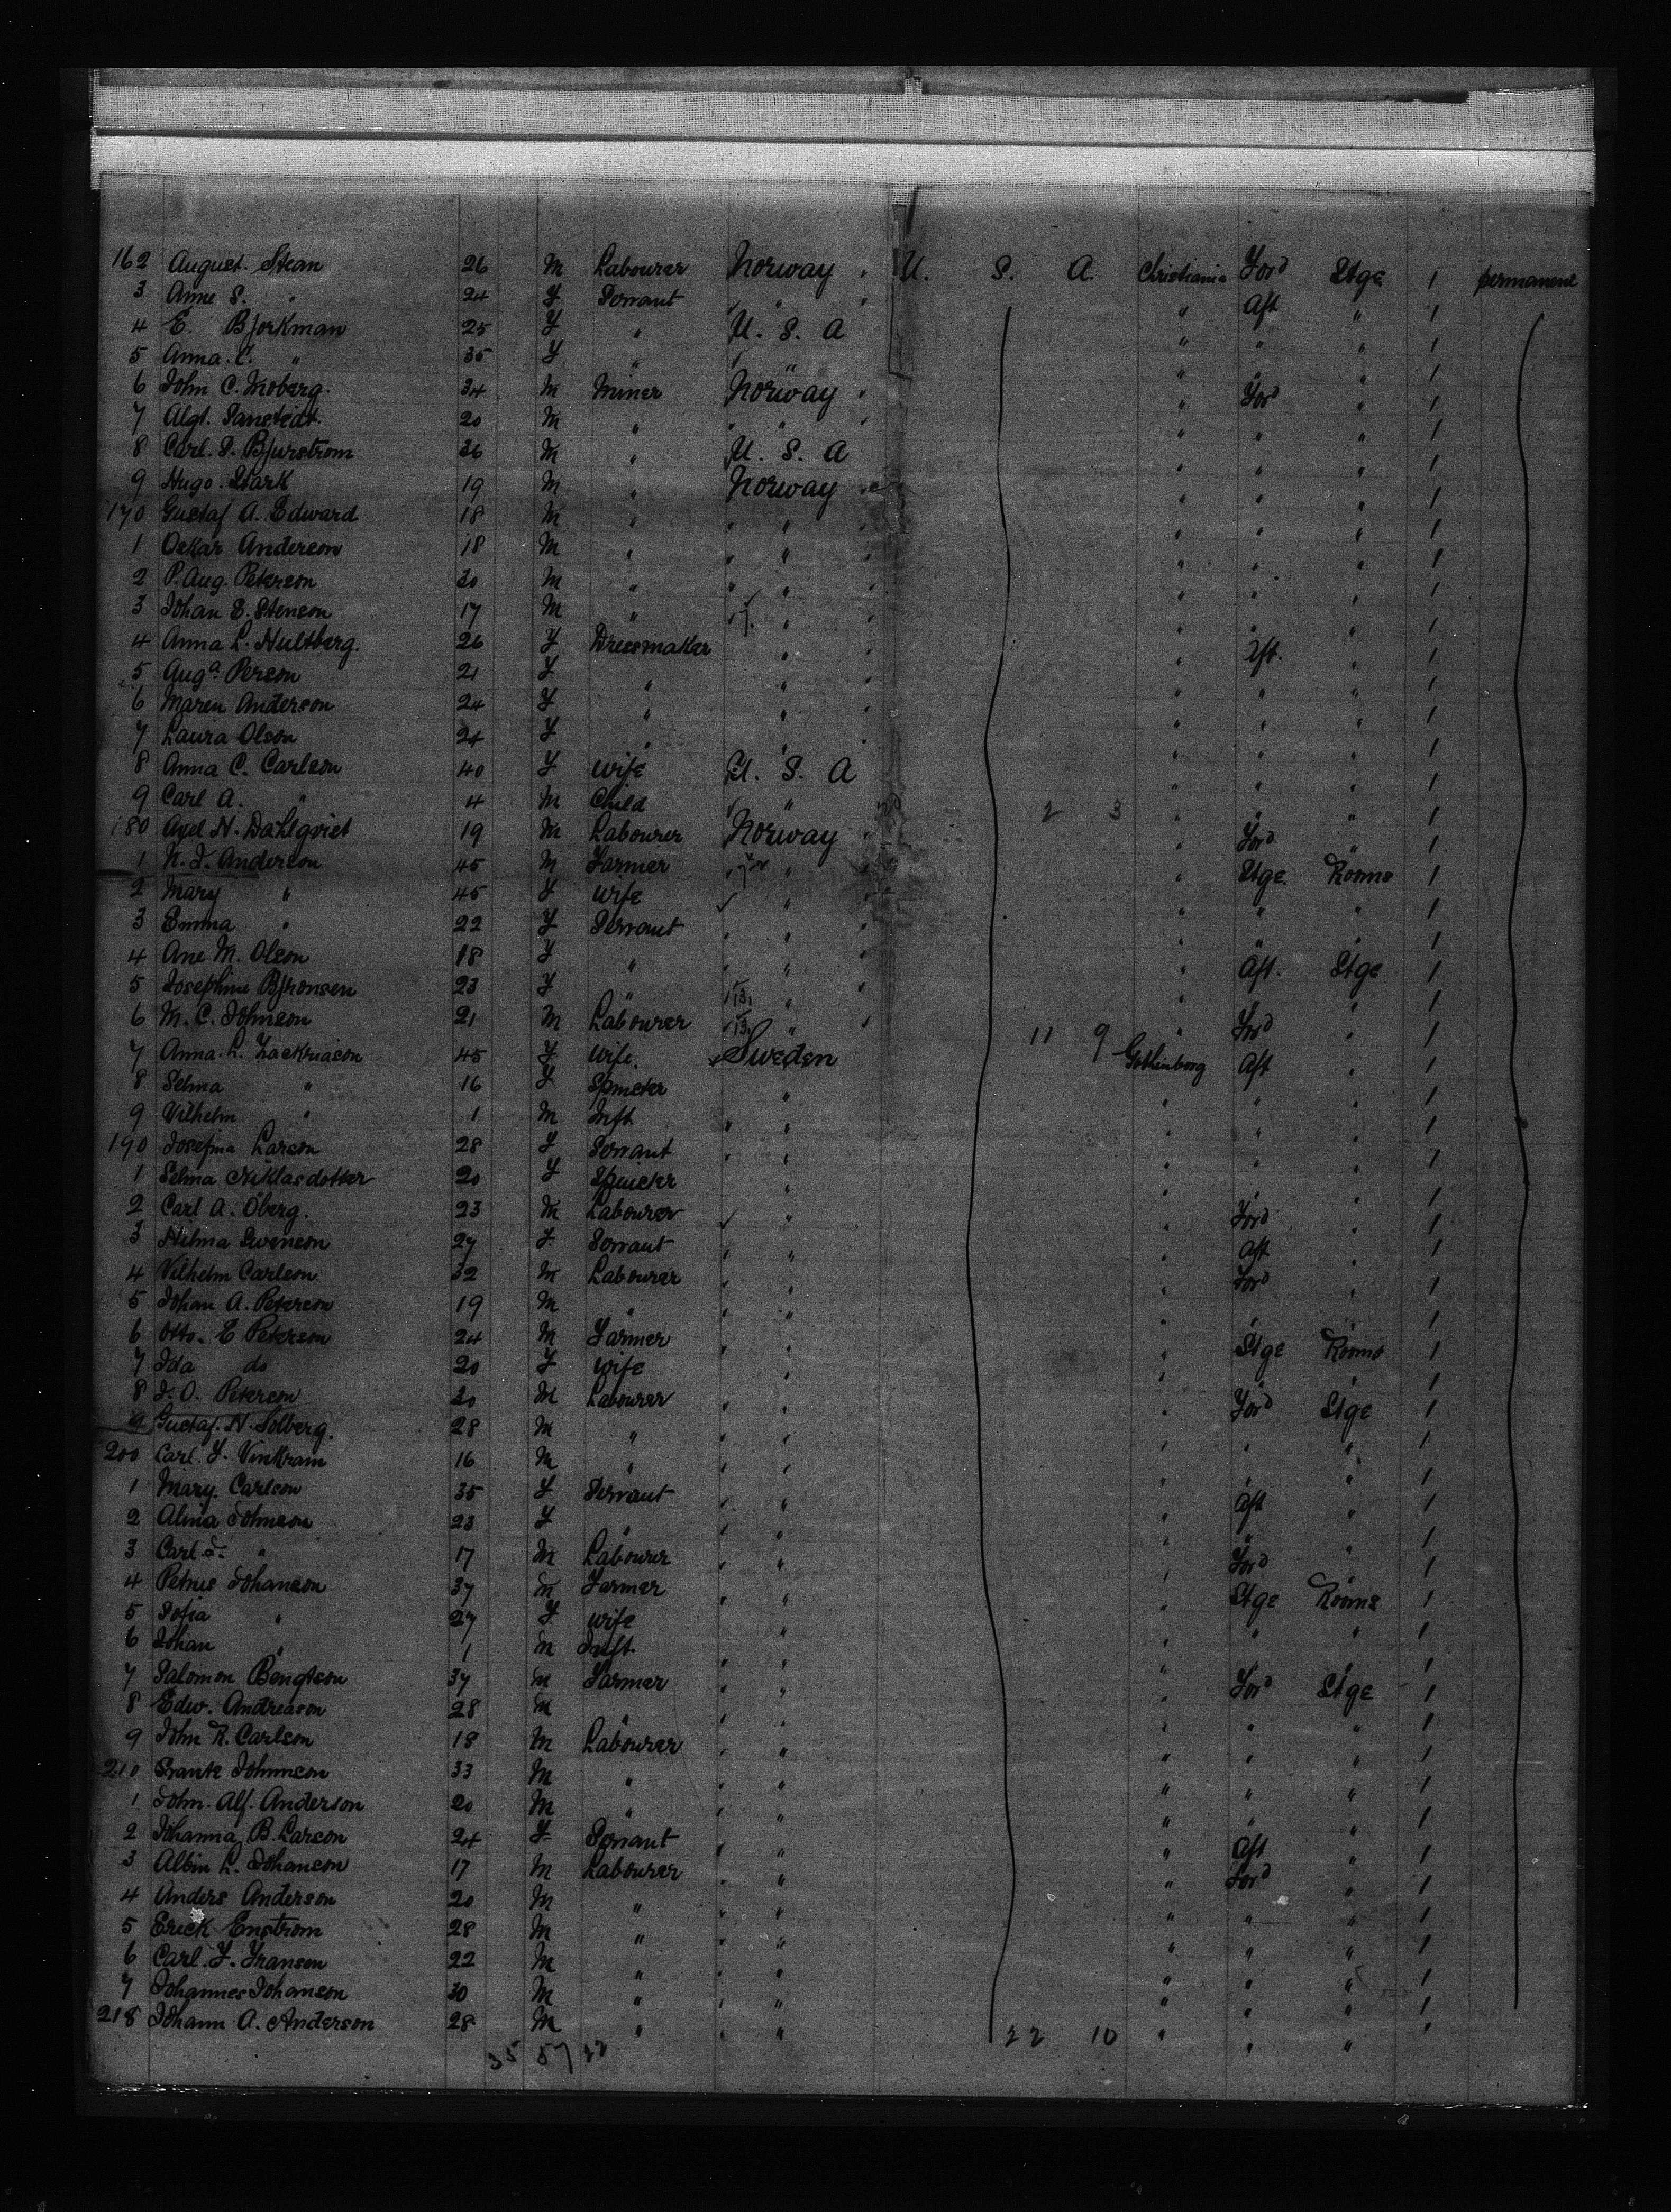 162 August. Stean 26 M Labourer Norway " U. S. A. Christiania For'd Stge 1 permanent
3 Anne S. " 24 F Servant " " Aft " 1
4 E. Bjorkman 25 F " U. S. A " " " 1
5 Anna. C. " 35 F " " " " " 1
6 John C. Moberg. 34 M Miner Norway " " For'd " 1
7 Algt. Sanstedt. 20 M " " " " " " 1
8 Carl. S. Bjurstrom 36 M " U. S. A " " " 1
9 Hugo. Stark 19 M " Norway " " " 1
170 Gustaf A. Edward 18 M " " " " " " 1
1 Oskar Anderson 18 M " " " " " " 1
2 P. Aug. Peterson 30 M " " " " " " 1
3 Johan E. Stenson 17 M " " " " " 1
4 Anna L. Hultberg. 26 F Dressmaker " " Aft. " 1
5 Aug.a Person 21 F " " " " " 1
6 Maren Anderson 24 F " " " " " 1
7 Laura Olson 24 F " " " " " 1
8 Anna C. Carlson 40 F Wife U. S. A " " " 1
9 Carl A. " 4 M Child " " 2 3 " " " 1
180 Axel N. Dahlqvist 19 M Labourer Norway " For'd " 1
1 N. J. Anderson 45 M Farmer " " " Stge. Rooms 1
2 Mary " 45 F Wife " " " " 1
3 Emma " 22 F Servant " " " " " 1
4 Ane M. Olson 18 F " " " " Aft. Stge 1
5 Josephine Bjronsen 23 F " " " " " 1
6 M. C. Johnson 21 M Labourer " 11 9 " For'd " 1
7 Anna. L. Zackriason 45 F Wife. Sweden Gothinborg Aft " 1
8 Selma " 16 F Spinster " " " " 1
9 Vilhelm " 1 M Inft " " " " " 1
190 Josefina Larson 28 F Servant " " " " " 1
1 Selma Niklasdotter 20 F Spinster " " " " 1
2 Carl A. Oberg. 23 M Labourer " " For'd " 1
3 Hilma Swenson 27 F Servant " " " Aft " 1
4 Vilhelm Carlson 32 M Labourer " " " For'd " 1
5 Johan A. Peterson 19 M " " " " " " 1
6 Otto. E Peterson 24 M Farmer " " " Stge Rooms 1
7 Ida do 20 F Wife " " " " 1
8 J. O. Peterson 30 M Labourer " " " For'd Stge 1
9 Gustaf. N. Solberg. 28 M " " " " " " 1
200 Carl. F. Vinkram 16 M " " " " " " 1
1 Mary. Carlson 35 F Servant " " " Aft " 1
2 Alma Johnson 23 F " " " " " " 1
3 Carl J. " 17 M Labourer " " " For'd " 1
4 Petrus Johanson 37 M Farmer " " " Stge Rooms 1
5 Sofia " 27 F wife " " " " 1
6 Johan " 1 M Inft " " " " " 1
7 Salomon Bengtson 37 M Farmer " " " For'd Stge 1
8 Edw. Andreason 28 M " " " " " " 1
9 John R. Carlson 18 M Labourer " " " " " 1
210 Frantz Johnnson 33 M " " " " " " 1
1 John. Alf. Anderson 20 M " " " " " " 1
2 Johanna B. Larson 24 F Servant " " " Aft " 1
3 Albin L. Johanson 17 M Labourer " " " For'd " 1
4 Anders Anderson 20 M " " " " " " 1
5 Erick Enstrom 28 M " " " " " " 1
6 Carl. F. Franson 22 M " " " " " " 1
7 Johannes Johanson 30 M " " " " " " 1
218 Johann A. Anderson 28 M " " " 22 10 " " " 1
35 57 22